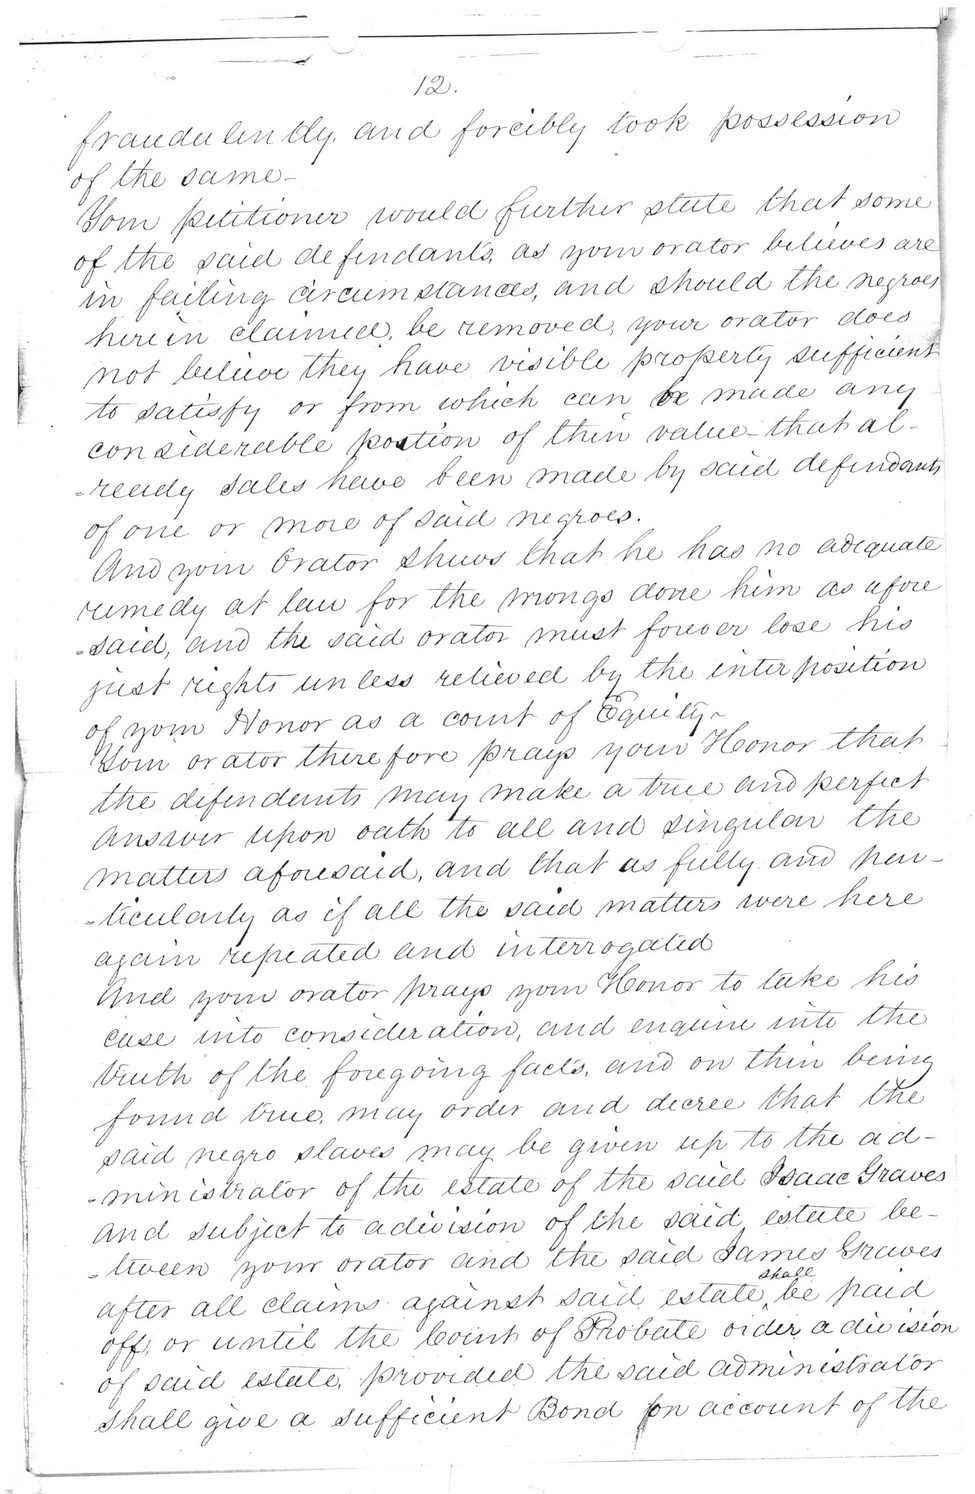 12.
fraudulently, and forcibly took possession
of the same-
Your petitioner would further state that some
of the said defendants, as your orator believes are
in failing circumstances, and should the negroes
herein claimed, be removed, your orator does
not believe they have visible property sufficient
to satisfy or from which can be made any
considerable portion of their value- that al-
-ready sales have been made by said defendants
of one or more of said negroes.
And your Orator shews that he has no adequate
remedy at law for the wrongs done him as afore
-said, and the said orator must forever lose his
just rights unless relieved by the interposition
of your Honor as a court of Equity-
Your orator therefore prays your Honor that
the defendants may make a true and perfect
answer upon oath to all and singular the
matters aforesaid, and that as fully and par-
-ticularly as if all the said matters were here
again repeated and interrogated
And your orator prays your Honor to take his
case into consideration, and enquire into the
truth of the foregoing facts, and on their being
found true, may order and decree that the
said negro slaves may be given up to the ad-
-ministrator of the estate of the said Isaac Graves
and subject to a division of the said estate be-
-tween your orator and the said James Graves
after all claims against said estate, shall be paid
off, or until the Court of Probate order a division
of said estate, provided the said administrator
shall give a sufficient Bond on account of the